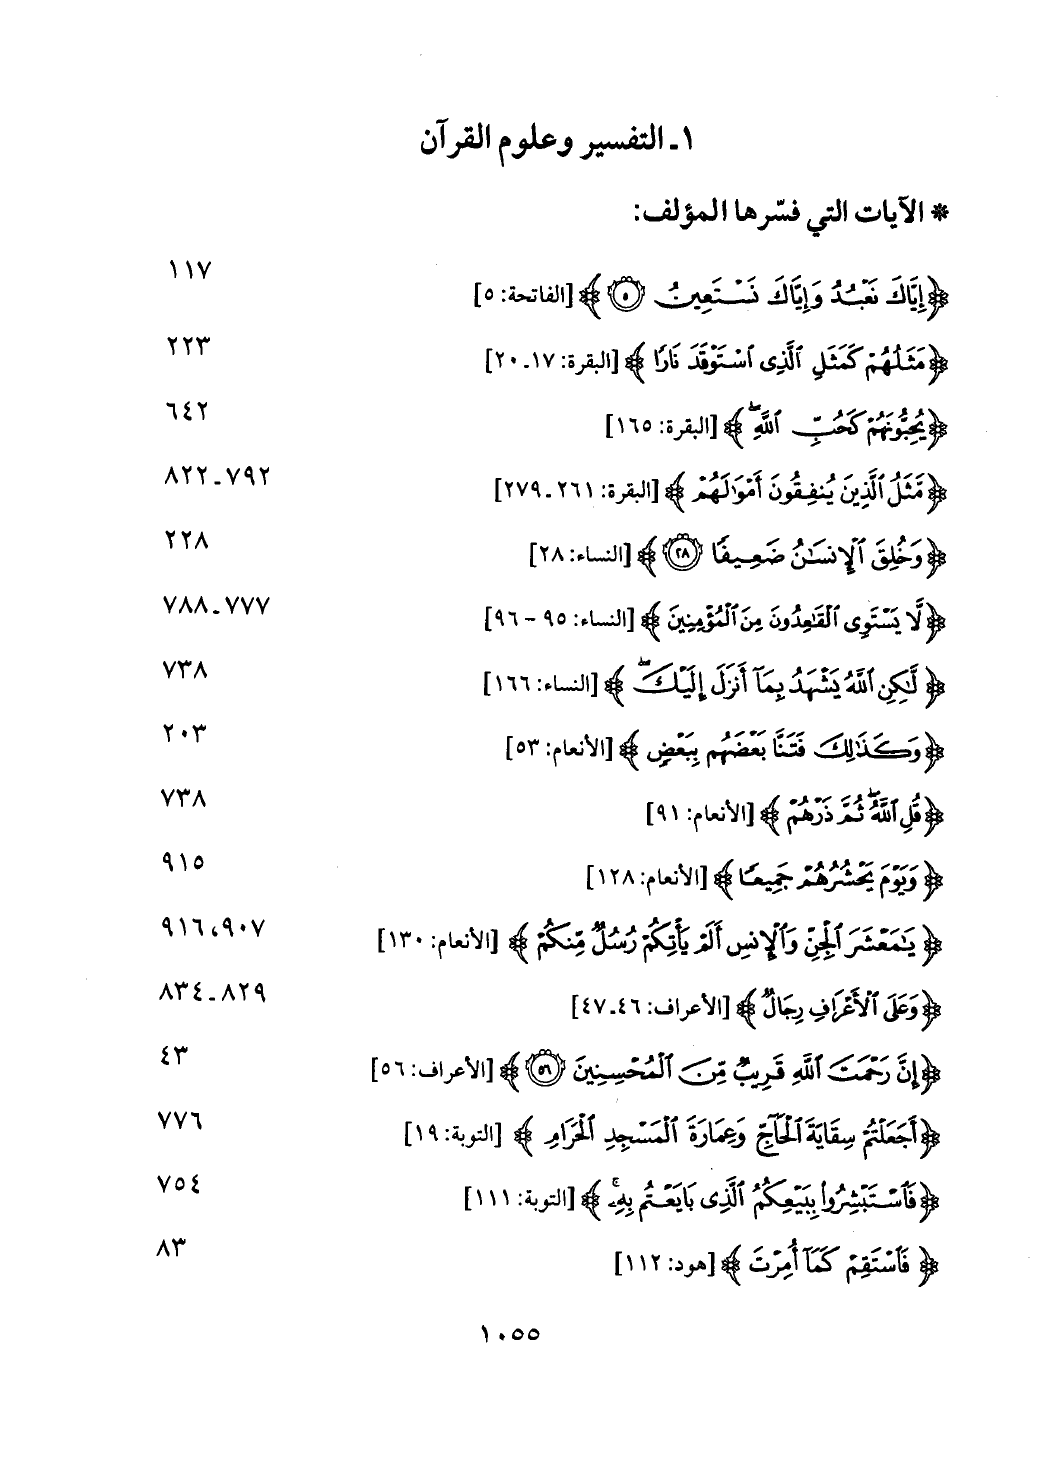 ١ـ التفسير وعلوم القرآن
* الآيات التي فسّرها المؤلف:
﴿إِيَّاكَ نَعْبُدُ وَإِيَّاكَ نَسْتَعِينُ ۝٥﴾ [الفاتحة: ٥] ١١٧
﴿مَثَلُهُمْ كَمَثَلِ ٱلَّذِى ٱسْتَوْقَدَ نَارًا﴾ [البقرة: ١٧ـ٢٠] ٢٢٣
﴿يُحِبُّونَهُمْ كَحُبِّ ٱللَّهِۖ﴾ [البقرة: ١٦٥] ٦٤٢
﴿مَّثَلُ ٱلَّذِينَ يُنفِقُونَ أَمْوَٰلَهُمْ﴾ [البقرة: ٢٦١ـ٢٧٩] ٧٩٢ـ٨٢٢
﴿وَخُلِقَ ٱلْإِنسَٰنُ ضَعِيفًا ۝٢٨﴾ [النساء: ٢٨] ٢٢٨
﴿لَّا يَسْتَوِى ٱلْقَٰعِدُونَ مِنَ ٱلْمُؤْمِنِينَ﴾ [النساء: ٩٥ - ٩٦] ٧٧٧ـ٧٨٨
﴿لَّٰكِنِ ٱللَّهُ يَشْهَدُ بِمَآ أَنزَلَ إِلَيْكَۖ﴾ [النساء: ١٦٦] ٧٣٨
﴿وَكَذَٰلِكَ فَتَنَّا بَعْضَهُم بِبَعْضٍ﴾ [الأنعام: ٥٣] ٢٠٣
﴿قُلِ ٱللَّهُۖ ثُمَّ ذَرْهُمْ﴾ [الأنعام: ٩١] ٧٣٨
﴿وَيَوْمَ يَحْشُرُهُمْ جَمِيعًا﴾ [الأنعام: ١٢٨] ٩١٥
﴿يَٰمَعْشَرَ ٱلْجِنِّ وَٱلْإِنسِ أَلَمْ يَأْتِكُمْ رُسُلٌ مِّنكُمْ﴾ [الأنعام: ١٣٠] ٩٠٧، ٩١٦
﴿وَعَلَى ٱلْأَعْرَافِ رِجَالٌ﴾ [الأعراف: ٤٦ـ٤٧] ٨٢٩ـ٨٣٤
﴿إِنَّ رَحْمَتَ ٱللَّهِ قَرِيبٌ مِّنَ ٱلْمُحْسِنِينَ ۝٥٦﴾ [الأعراف: ٥٦] ٤٣
﴿أَجَعَلْتُمْ سِقَايَةَ ٱلْحَآجِّ وَعِمَارَةَ ٱلْمَسْجِدِ ٱلْحَرَامِ﴾ [التوبة: ١٩] ٧٧٦
﴿فَٱسْتَبْشِرُوا۟ بِبَيْعِكُمُ ٱلَّذِى بَايَعْتُم بِهِۦۚ﴾ [التوبة: ١١١] ٧٥٤
﴿فَٱسْتَقِمْ كَمَآ أُمِرْتَ﴾ [هود: ١١٢] ٨٣
١٠٥٥